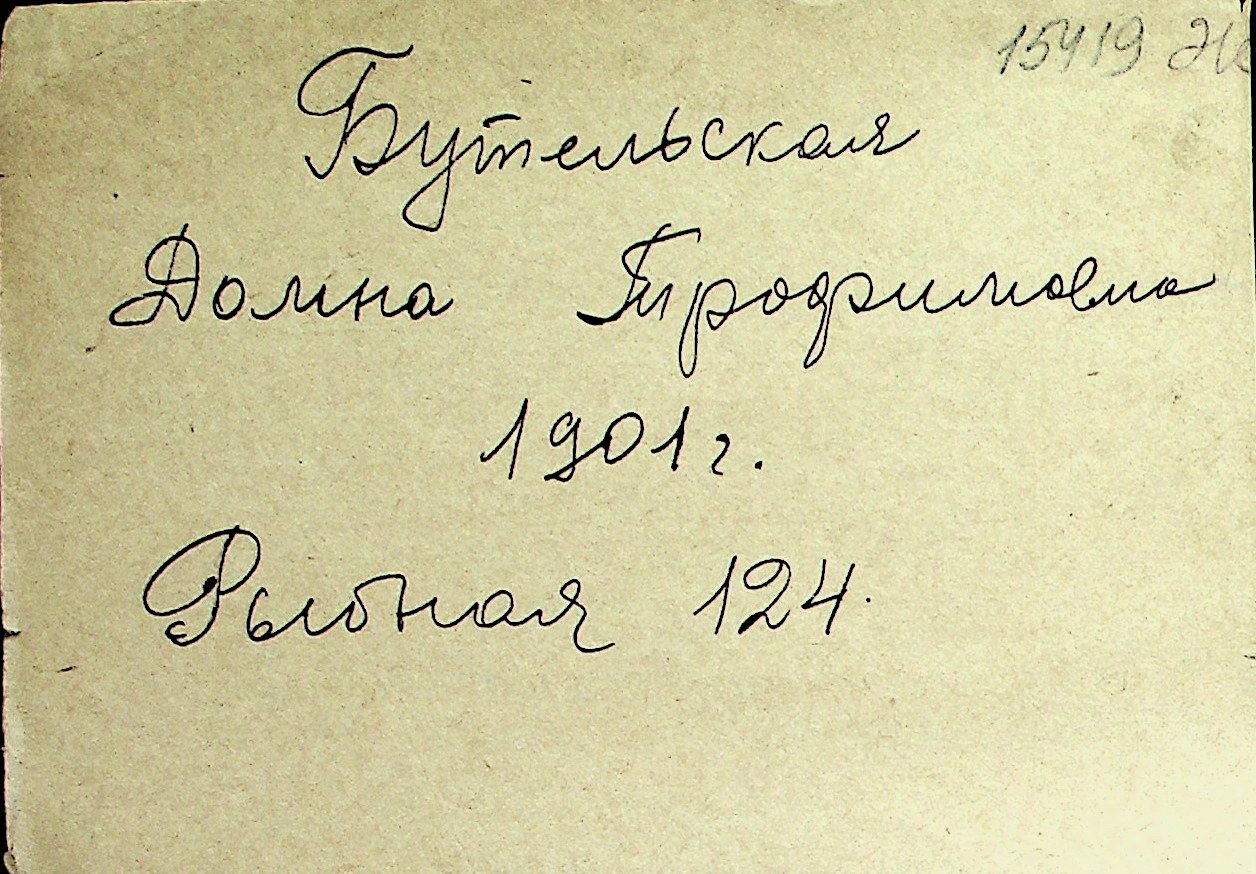 15419
Бутельская
Домна Трофимовна
1901 г.
Рыбная 124.